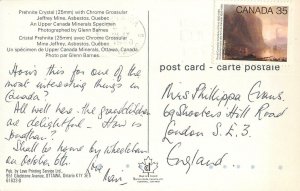 Prehnite Crystal (25mm) with Chrome Grossular
Jeffrey Mine, Asbestos, Quebec
An Upper Canada Minerals Specimen
Photography by Glenn Barnes
Cristal Prehnite (25mm) avec Chrome Grossular
Mine Jeffrey, Asbestos, Québec
Un spécimen de Upper Canada Minerals, Ottawa, Canada.
Photo par Glenn Barnes.
How's this for one of the
most interesting things in
Canada?
All well here - the grandchildren
are delightful - How is
Jonathan?
Shall be home by wheelchair
on October 6th.
Love
Pub. by Love Printing Service Ltd.,
CANADA 35
post card - carte postale
Mrs Phillippa Evans
69 Shooters Hill Road
London S.E.3.
England